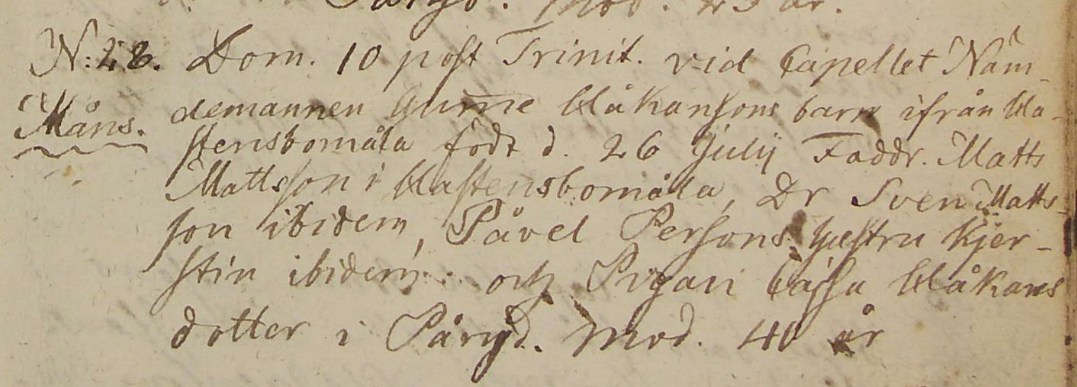 Påryd. Mod. 43 år.
N:28. Dom. 10 post Trinit. vid Capellet Näm-
Måns. demannen Gumme Håkansons barn ifrån Ha-
stensbomåla födt d. 26 Julij Faddr. Matts
Mattsson i Hastensbomåla, Dr Sven Matts-
son ibidem, Påvel Persons hustru Kjer-
stin ibidem och Pigan Cajsa Håkans
dotter i Påryd. Mod. 40 år